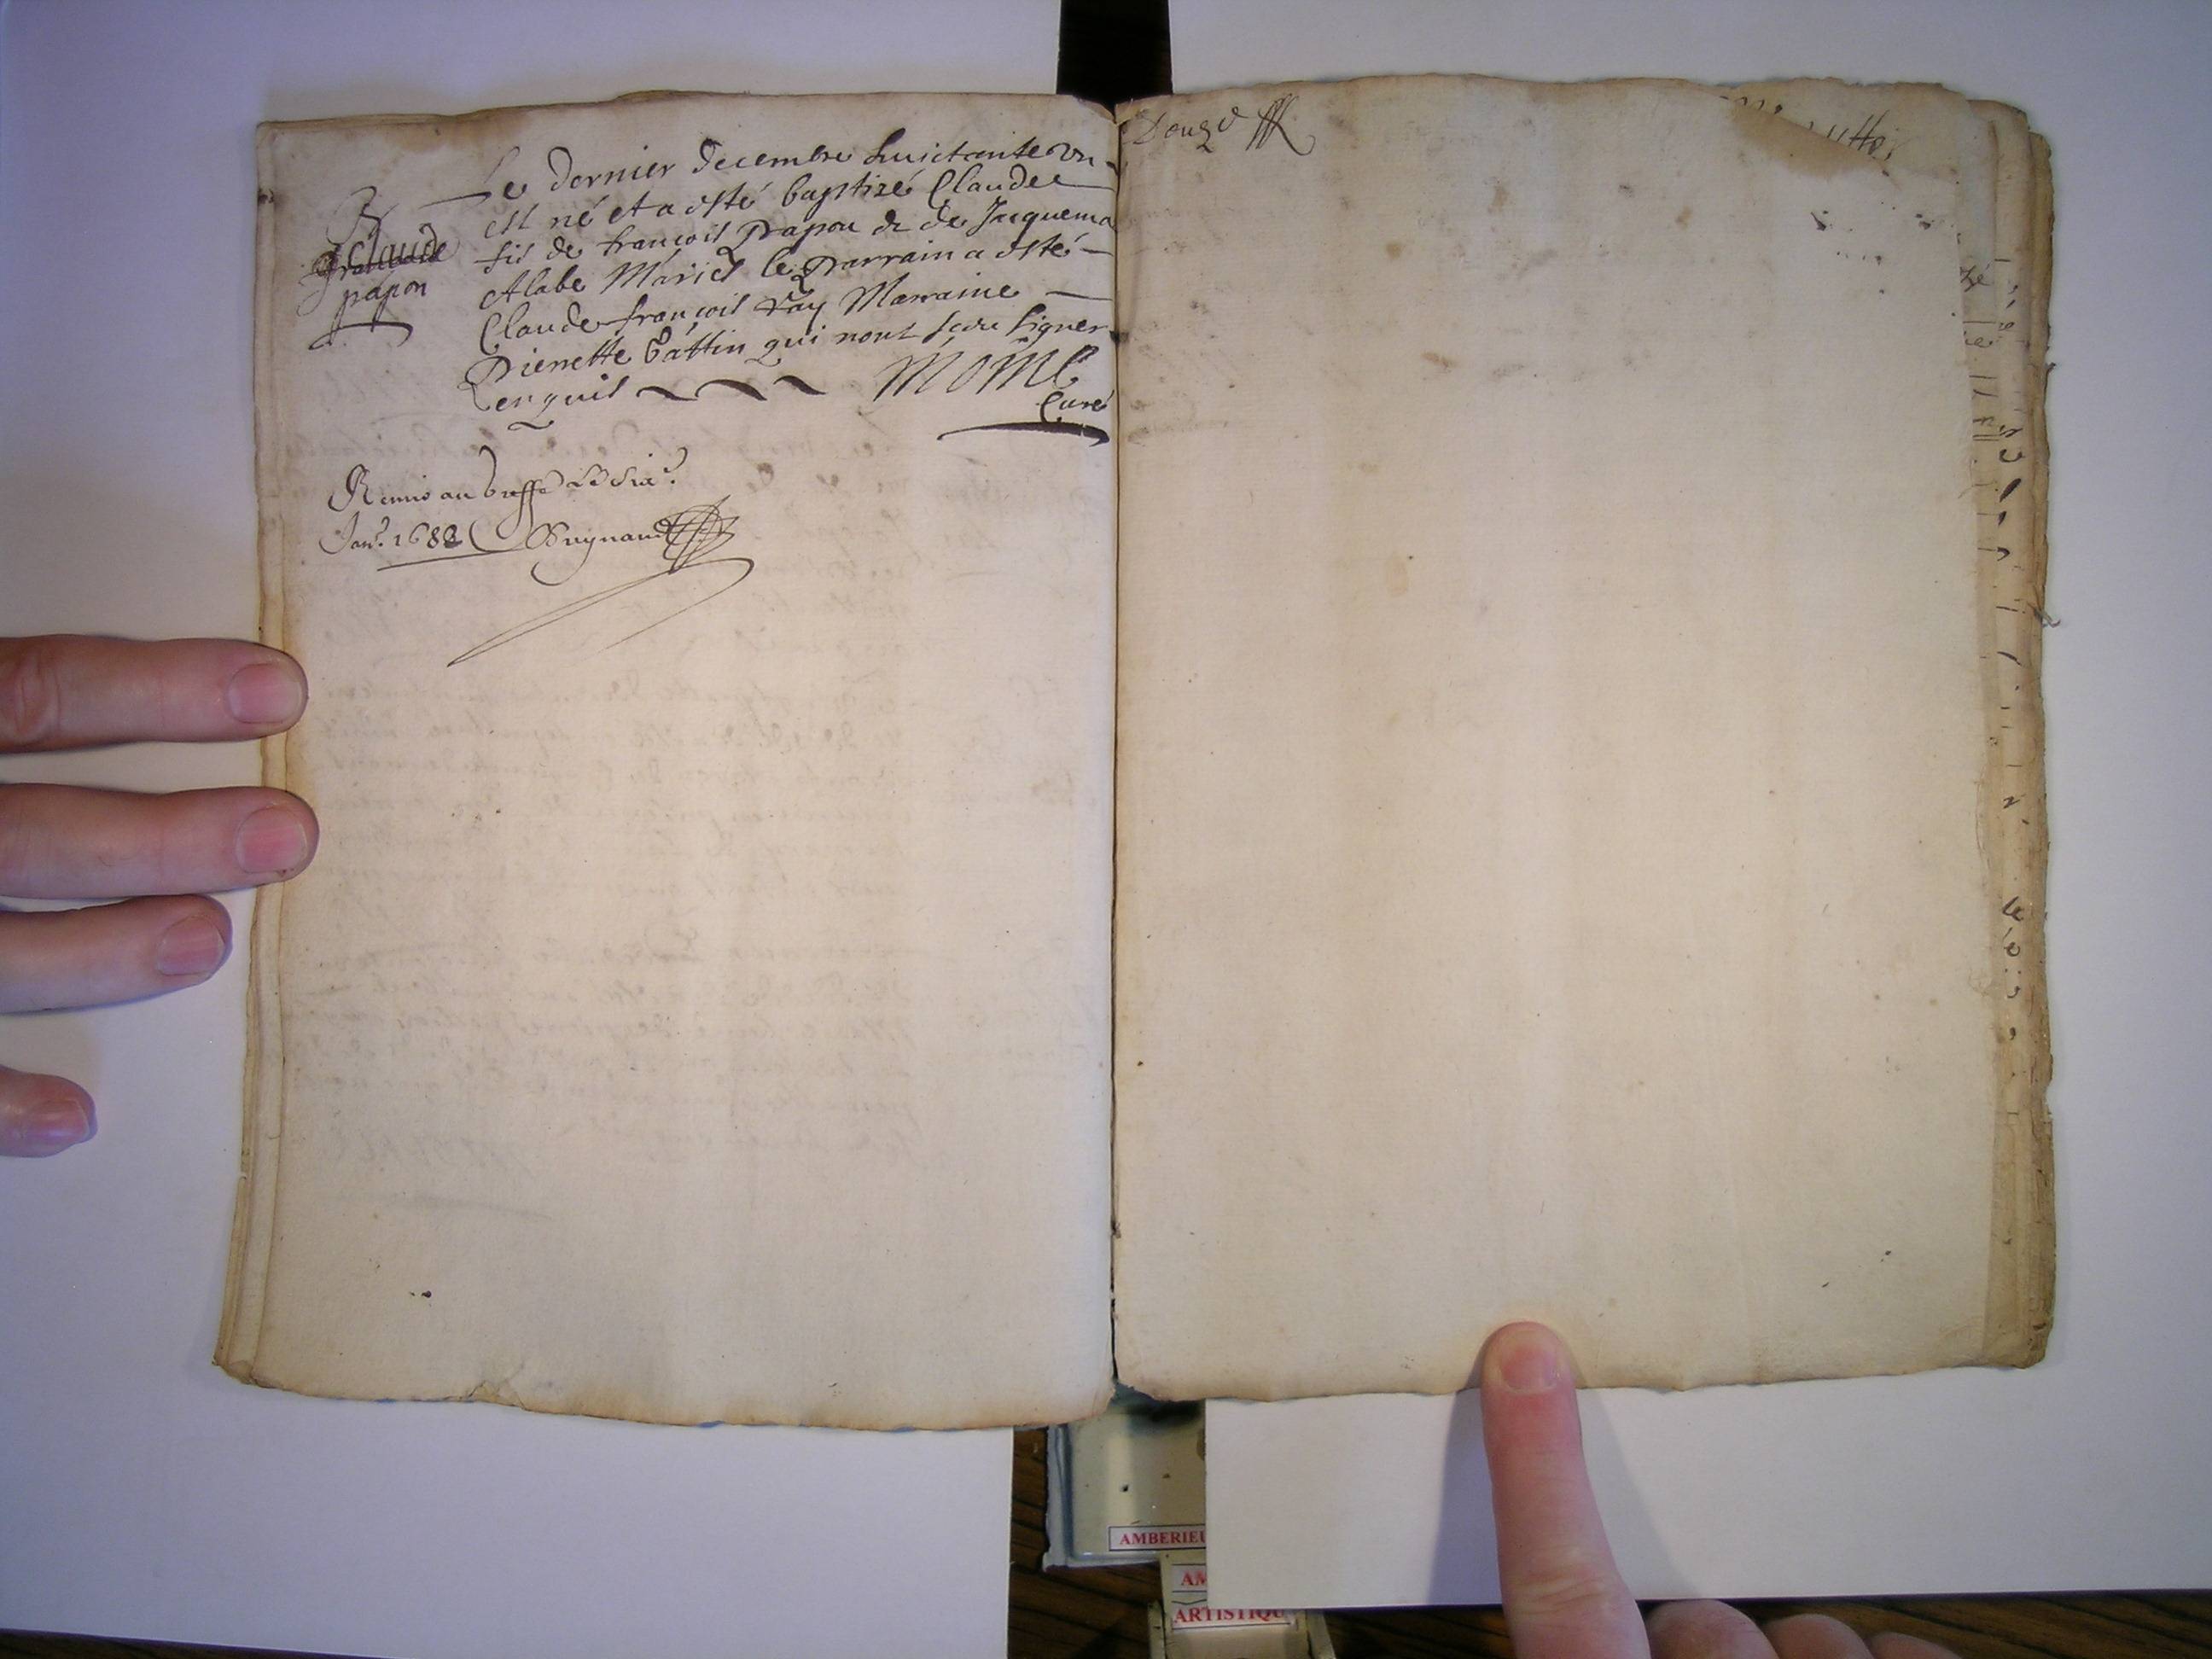 Le dernier decembre huictante vn
est né et a esté baptizé Claude
fis de françois Papon & de Jacquema
Alabe Mariés le Parrain a esté
Claude françois ray Marraine
Pienette Battin qui nont sceu signer
enquis
MOINE
Curé
B
Claude
papon
Remis au Greffe Le six.e
Jan.r 1682 Buynand
Douze
AMBERIEU
AM
ARTISTIQU